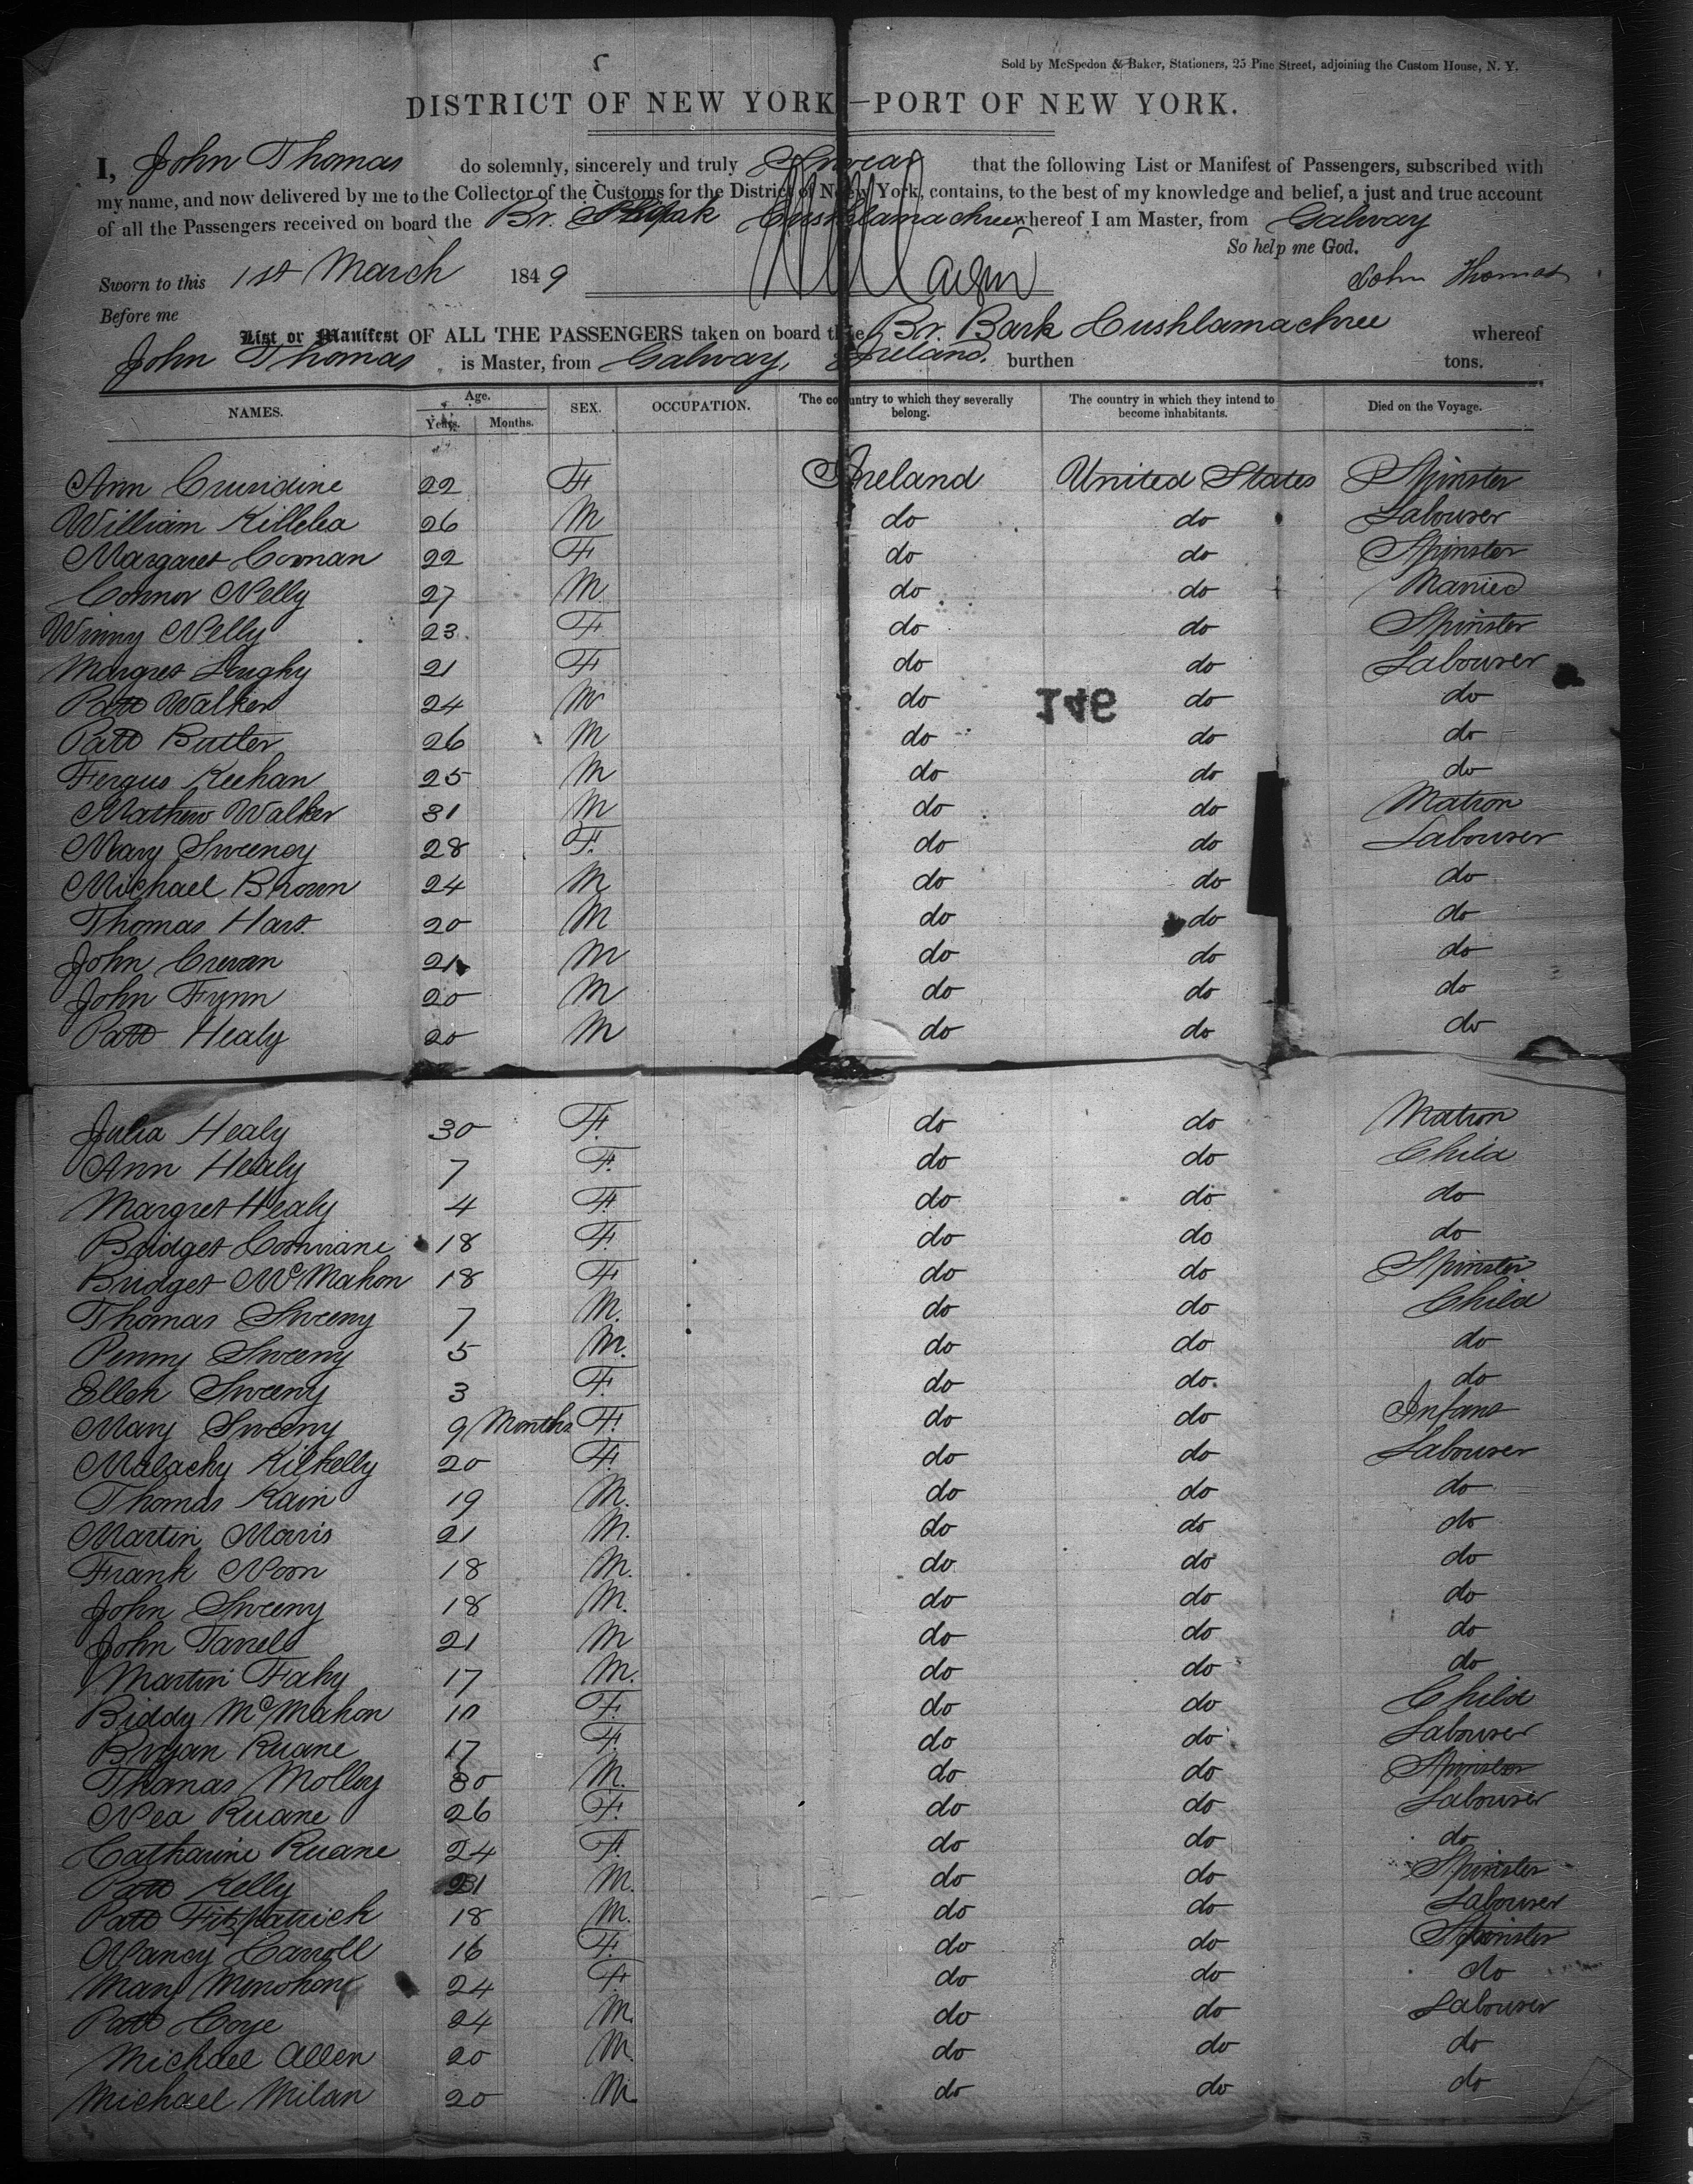 Sold by McSpedon & Baker, Stationers, 25 Pine Street, adjoining the Custom House, N. Y.
DISTRICT OF NEW YORK—PORT OF NEW YORK.
I, John Thomas do solemnly, sincerely and truly Swear that the following List or Manifest of Passengers, subscribed with
my name, and now delivered by me to the Collector of the Customs for the District of New York, contains, to the best of my knowledge and belief, a just and true account
of all the Passengers received on board the Br. Cushlamachree whereof I am Master, from Galway
So help me God.
Sworn to this 1st March 1849 John Thomas
Before me
List or Manifest OF ALL THE PASSENGERS taken on board the Br. Bark Cushlamachree whereof
John Thomas is Master, from Galway, Ireland. burthen tons.
NAMES. Age. Years. Months. SEX. OCCUPATION. The country to which they severally belong. The country in which they intend to become inhabitants. Died on the Voyage.
Ann 22 F Ireland United States Spinster
William Killelea 26 M do do Labourer
Margaret Coonan 22 F do do Spinster
Connor Nelly 27 M do do Married
Winny Nelly 23 F do do Spinster
Margret 21 F do do Labourer
Patt Walker 24 M do do do
146
Patt Butler 26 M do do do
Fergus Keehan 25 M do do do
Mathew Walker 31 M do do Matron
Mary Sweeney 28 F. do do Labourer
Michael Brown 24 M do do do
Thomas Hart 20 M do do do
John Crevan 21 M do do do
John Fynn 20 M do do do
Patt Healy 20 M do do do
Julia Healy 30 F. do do Matron
Ann Healy 7 F. do do Child
Margret Healy 4 F. do do do
Bridget 18 F. do do do
Bridget McMahon 18 F. do do Spinster
Thomas Sweeny 7 M. do do Child
Penny Sweeny 5 M. do do do
Ellen Sweeny 3 F. do do. do
Mary Sweeny 9 Months F. do do Infant
Malachy Kilkelly 20 F. do do Labourer
Thomas Kain 19 M. do do do
Martin Morris 21 M. do do do
Frank Noon 18 M. do do do
John Sweeny 18 M. do do do
John 21 M do do do
Martin Fahy 17 M. do do do
Biddy McMahon 10 F. do do Child
Bryan Ruane 17 F. do do Labourer
Thomas Molloy 30 M. do do Spinster
Nea Ruane 26 F. do do Labourer
Catharine Ruane 24 F. do do do
Patt Kelly 21 M. do do Spinster
Patt Fitzpatrick 18 M. do do Labourer
Nancy Carroll 16 F. do do Spinster
Mary 24 F do do do
Patt Coye 24 M. do do Labourer
Michael Allen 20 M. do do do
Michael Milan 20 M. do do do